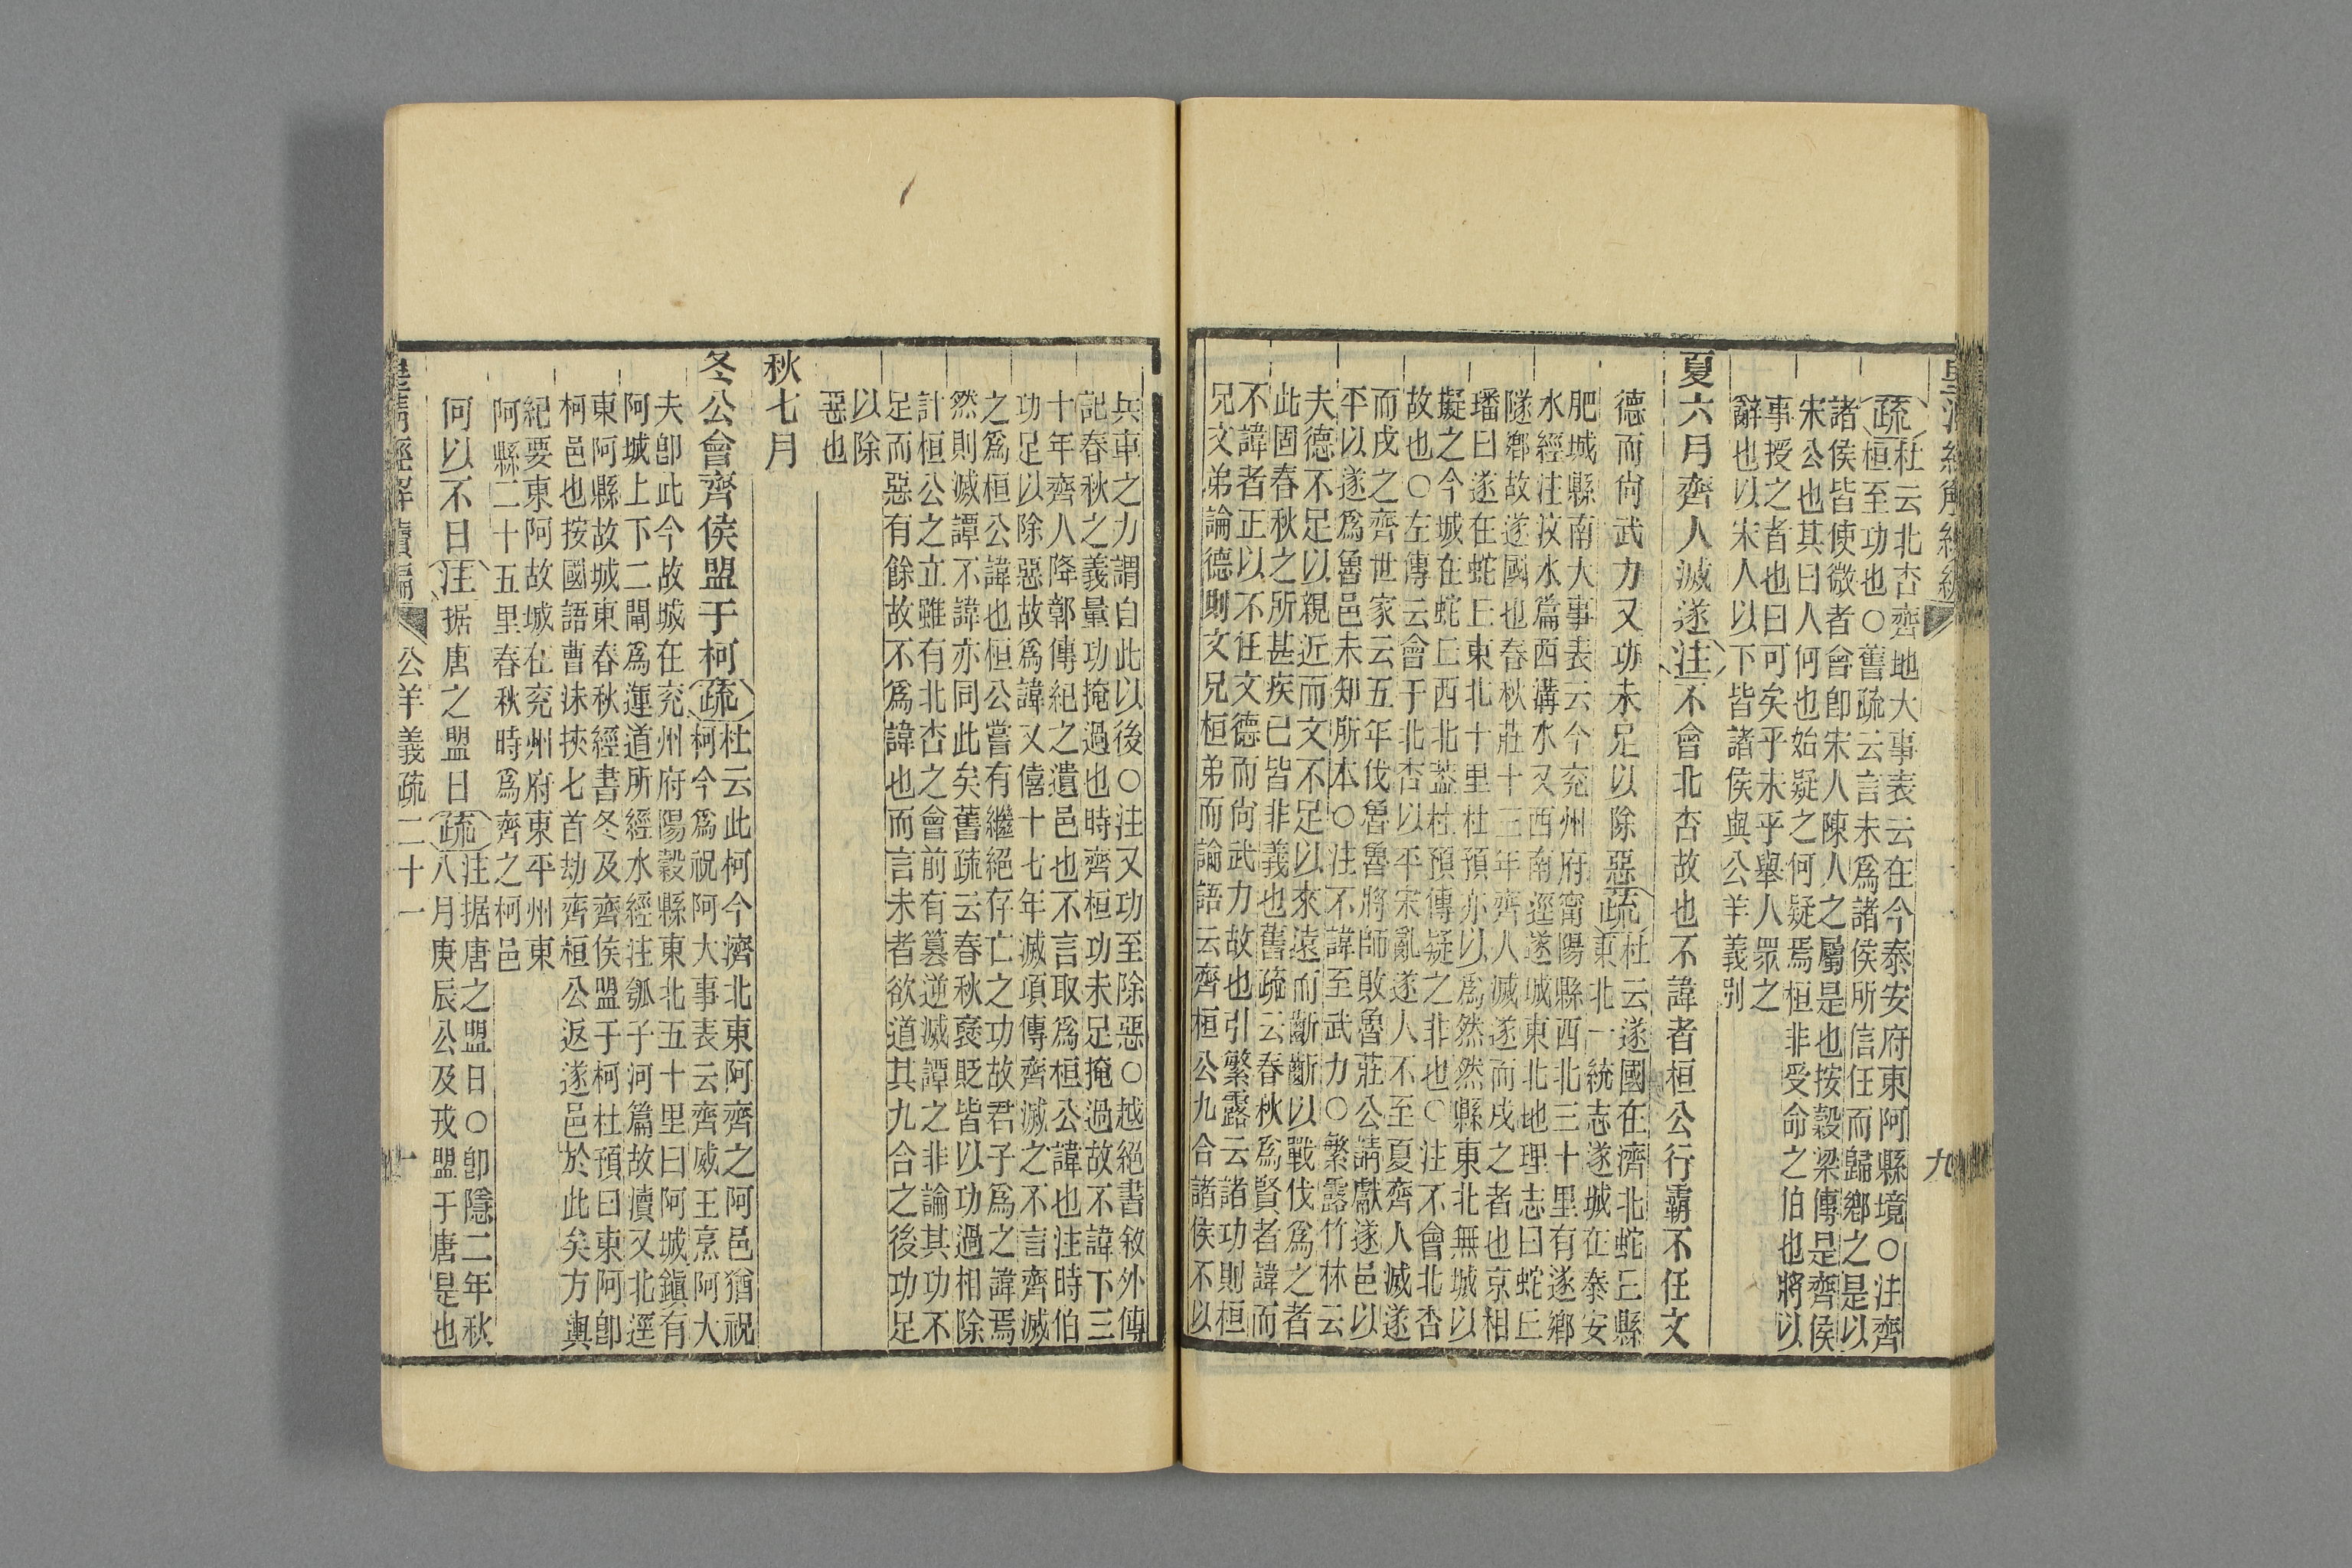 疏杜云北杏齊地大事表云在今泰安府東阿縣境○注齊
桓至功也○舊疏云言未爲諸侯所信任而歸鄉之是以
諸侯皆使微者會卽宋人陳人之屬是也按穀梁傳是齊侯
宋公也其曰人何也始疑之何疑焉桓非受命之伯也將以
事授之者也曰可矣乎未乎舉人眾之
辭也以宋人以下皆諸侯與公羊義別
夏六月齊人滅遂注不會北杏故也不諱者桓公行霸不任文
德而尙武力又功未足以除惡疏杜云遂國在濟北蛇丘縣
東北一統志遂城在泰安
肥城縣南大事表云今兗州府甯陽縣西北三十里有遂鄉
水經注汶水篇西溝水又西南逕遂城東北地理志曰蛇丘
隧鄉故遂國也春秋莊十三年齊人滅遂而戍之者也京相
璠曰遂在蛇丘東北十里杜預亦以爲然然縣東北無城以
擬之今城在蛇丘西北葢杜預傳疑之非也○注不會北杏
故也○左傳云會于北杏以平宋亂遂人不至夏齊人滅遂
而戍之齊世家云五年伐魯魯將師敗魯莊公請獻遂邑以
平以遂爲魯邑未知所本○注不諱至武力○繁露竹林云
夫德不足以親近而文不足以來遠而斷斷以戰伐爲之者
此固春秋之所甚疾已皆非義也舊疏云春秋爲賢者諱而
不諱者正以不任文德而尙武力故也引繁露云諸功則桓
兄文弟論德則文兄桓弟而論語云齊桓公九合諸侯不以
九
兵車之力謂自此以後○注又功至除惡○越絕書敘外傳
記春秋之義量功掩過也時齊桓功未足掩過故不諱下三
十年齊人降鄣傳紀之遺邑也不言取爲桓公諱也注時伯
功足以除惡故爲諱又僖十七年滅項傳齊滅之不言齊滅
之爲桓公諱也桓公嘗有繼絕存亡之功故君子爲之諱焉
然則滅譚不諱亦同此矣舊疏云春秋襃貶皆以功過相除
計桓公之立雖有北杏之會前有篡逆滅譚之非論其功不
足而惡有餘故不爲諱也而言未者欲道其九合之後功足
以除
惡也
秋七月
冬公會齊侯盟于柯疏杜云此柯今濟北東阿齊之阿邑猶祝
柯今爲祝阿大事表云齊威王烹阿大
夫卽此今故城在兗州府陽穀縣東北五十里曰阿城鎭有
阿城上下二閘爲運道所經水經注瓠子河篇故瀆又北逕
東阿縣故城東春秋經書冬及齊侯盟于柯杜預曰東阿卽
柯邑也按國語曹沬挾匕首劫齊桓公返遂邑於此矣方輿
紀要東阿故城在兗州府東平州東
阿縣二十五里春秋時爲齊之柯邑
何以不日注据唐之盟日疏注据唐之盟日○卽隱二年秋
八月庚辰公及戎盟于唐是也
皇淸經解續編 公羊義疏二十一 十